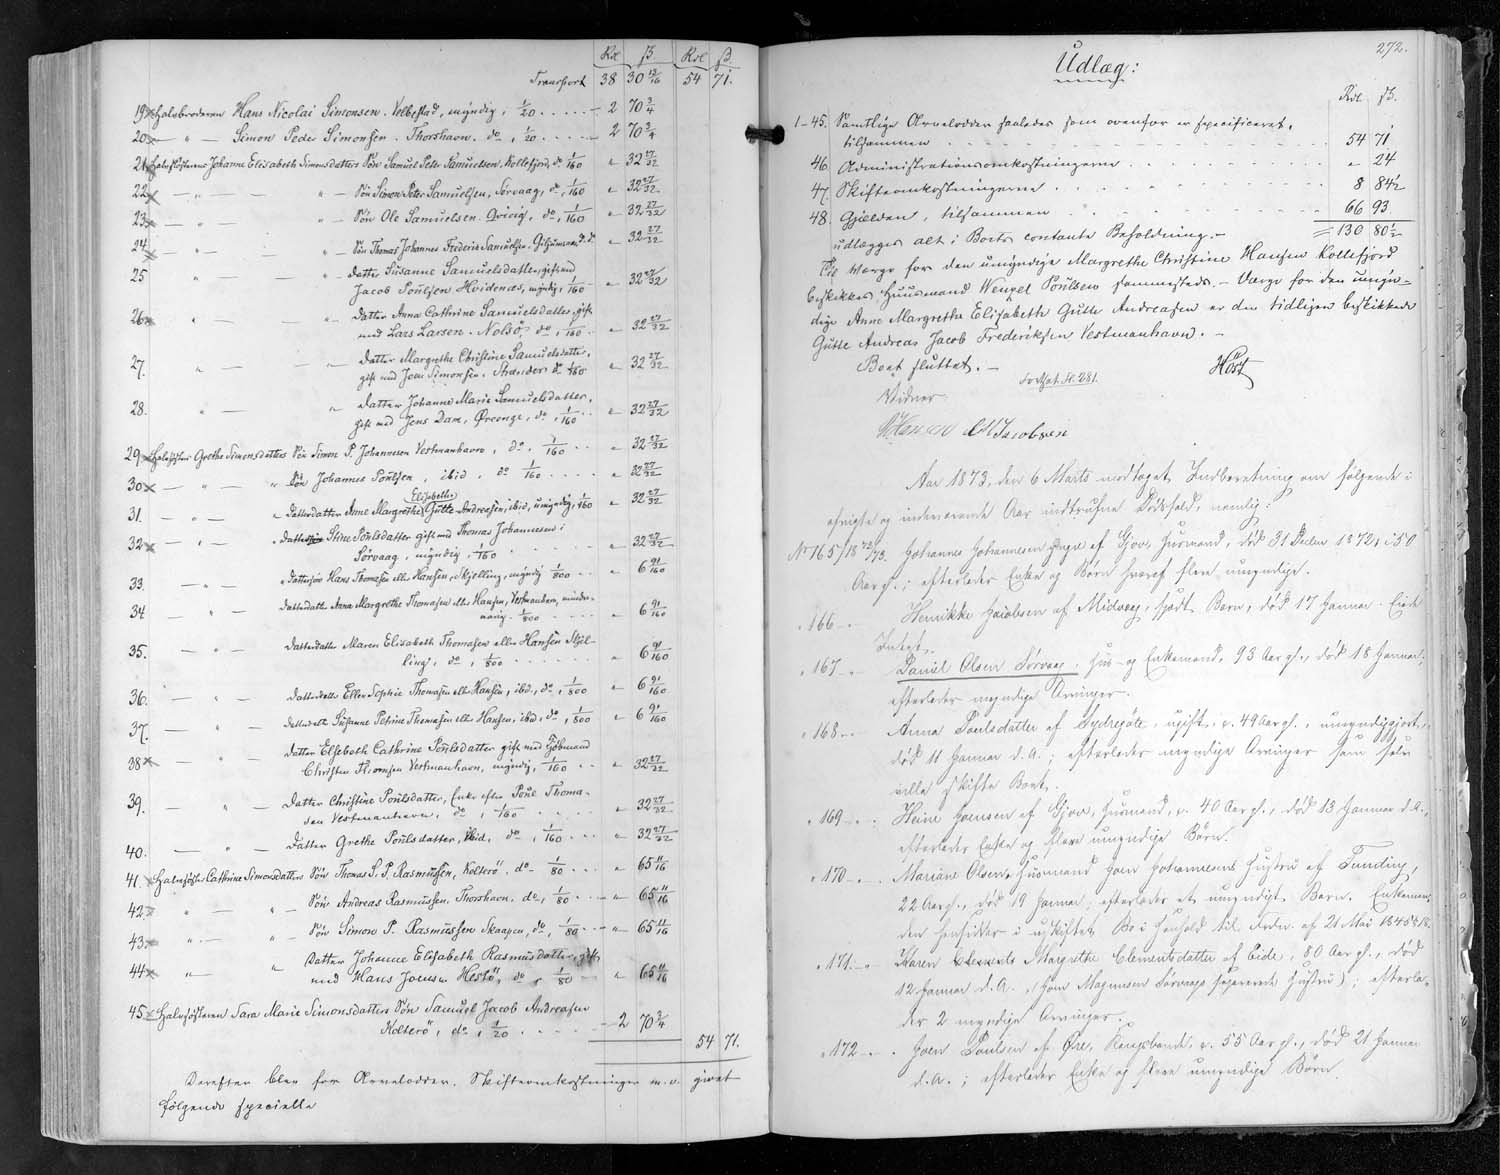 Rdl ß Rdl ß.
Transport 38 30 13/16 54 71.
19 x Halvbroderen Hans Nicolai Simonsen. Velbestad, myndig, 1/20 2 70 3/4
20 x " — Simon Peder Simonsen. Thorshavn. do, 1/20 2 70 3/4
21 x Halvsøsteren Johanne Elisabeth Simonsdatters Søn Samuel Peter Samuelsen. Kollefjord, do 1/160 " 32 27/32
22 x — " — " — Søn Simon Peter Samuelsen, Sørvaag, do, 1/160 " 32 27/32
23 x — " — " — Søn Ole Samuelsen. Qvivig, do, 1/160 " 32 27/32
24 x — " — " — Søn Thomas Johannes Frederik Samuelsen. d. d. " 32 27/32
25 — " — " — Datter Susanne Samuelsdatter, gift med
Jacob Poulsen Hvidenæs, myndig, 1/160 " 32 27/32
26 x — " — " — Datter Anna Cathrine Samuelsdatter, gift
med Lars Larsen. Nolsö, do, 1/160 " 32 27/32
27. — " — " — Datter Margrethe Christine Samuelsdatter,
gift med Joen Simonsen. do 1/160 " 32 27/32
28. — " — " Datter Johanne Marie Samuelsdatter,
gift med Jens Dam, do, 1/160 " 32 27/32
29 x Halvsøsteren Grethe Simonsdatters Søn Simon P. Johannesen Vestmanhavn, do, 1/160 " 32 27/32
30 x — " — " Søn Johannes Poulsen, ibid, do 1/160 " 32 27/32
31. — " — " Datterdatter Anne Margrethe Elisabeth Gutte Andreasen, ibid, umyndig, 1/160 " 32 27/32
32 x — " — " Stine Poulsdatter gift med Thomas Johannesen i
Sørvaag, myndig 1/160 " 32 27/32
33. — " — Dattersøn Hans Thomasen eller Hansen, Skjelling, myndig 1/800 " 6 91/160
34 — " — Datterdatter Anna Margrethe Thomasen eller Hansen, Vestmanhavn, mindre-
aarig. 1/800 " 6 91/160
35. — " — Datterdatter Maren Elisabeth Thomasen eller Hansen Skjel-
ling, do, 1/800 " 6 91/160
36. — " — Datterdatter Ellen Sophie Thomasen eller Hansen, ibid., do, 1/800 " 6 91/160
37. — " — Datterdatter Susanne Petrine Thomasen eller Hansen, ibid, do, 1/800 " 6 91/160
38 x — " — Datter Elsebeth Cathrine Poulsdatter gift med Kjöbmand
Christen Thomsen Vestmanhavn, myndig, 1/160 " 32 27/32
39. — " — Datter Christine Poulsdatter, Enke efter Poul Thoma-
sen Vestmanhavn, do, 1/160 " 32 27/32
40. — " — Datter Grethe Poulsdatter, ibid, do, 1/160 " 32 27/32
41. x Halvsøster Cathrine Simonsdatters Søn Thomas S. P. Rasmussen, Kolterö, do 1/80 " 65 11/16
42. x — " — " — Søn Andreas Rasmussen. Thorshavn. do, 1/80 " 65 11/16
43. x " — " — Søn Simon P. Rasmussen Skaapen, do, 1/80 " 65 11/16
44 x — " — " Datter Johanne Elisabeth Rasmusdatter, gift
med Hans Joensen Hestö, do, 1/80 " 65 11/16
45 x Halvsøsteren Sara Marie Simonsdatters Søn Samuel Jacob Andreasen
Kolterö, do, 1/20 2 70 3/4
54 71.
Derefter blev for Arvelodder, Skifteomkostninger m.v. givet
følgende specielle
272.
Udlæg:
Rdl. ß.
1-45. Samtlige Arvelodder saaledes som ovenfor er specificeret,
tilsammen 54 71
46. Administrationsomkostningerne " 24
47. Skifteomkostningerne 8 84 1/2
48. Gjælden, tilsammen 66 93
udlægges alt i Boets contante Beholdning. — = 130 80 1/2
Til Værge for den umyndige Margrethe Christine Hansen Kollefjord
beskikkes Huusmand Wenzel Poulsen sammesteds. — Værge for den umyn-
dige Anne Margrethe Elisabeth Gutte Andreasen er den tidligere beskikkede
Gutte Andreas Jacob Frederiksen Vestmanhavn. —
Boet sluttet. —
Fortsat Fl. 281. Høst
Vidner
Hansen Jacobsen
Aar 1873, den 6 Marts modtaget Indberetning om følgende i
afvigte og indeværende Aar indtrufne Dødsfald, nemlig:
No 165/18 72/73. Johannes Johannesen yngre af Gjov, Husmand, død 31 Decbr 1872, i 50
Aar gl.; efterlader Enke og Børn hvoraf flere umyndige.
" 166 — Henrikke Jacobsen af Midvaag, født Barn, død 17 Januar. Eiede
Intet.
" 167 Daniel Olsen Sørvaag. Huus- og Enkemand, 93 Aar gl., død 18 Januar;
efterlader myndige Arvinger.
" 168 — Anna Poulsdatter af Sydregøte, ugift, c. 49 Aar gl., umyndiggjort,
død 11 Januar d. A.; efterlader myndige Arvinger som selv
ville skifte Boet.
" 169 — Heine Joensen af Gjov, Husmand, c. 40 Aar gl., død 13 Januar d. A.,
efterlader Enke og flere umyndige Børn.
" 170 — Mariane Olsen, Husmand Joen Johannesens Hustru af Funding,
22 Aar gl., død 19 Januar; efterlader et umyndigt Barn. Enkeman-
den hensidder i uskiftet Bo i Henhold til Frdn. af 21 Mai 1845 § 18.
" 171 — Karen Margrethe Clementsdatter af Eide, 80 Aar gl., død
12 Januar d. A., (Joen Magnusen Sørvaags separerede Hustru); efterla-
der 2 myndige Arvinger.
" 172 — Joen Poulsen af Øre, Kongsbonde, c. 55 Aar gl., død 21 Januar
d. A.; efterlader Enke og flere umyndige Børn